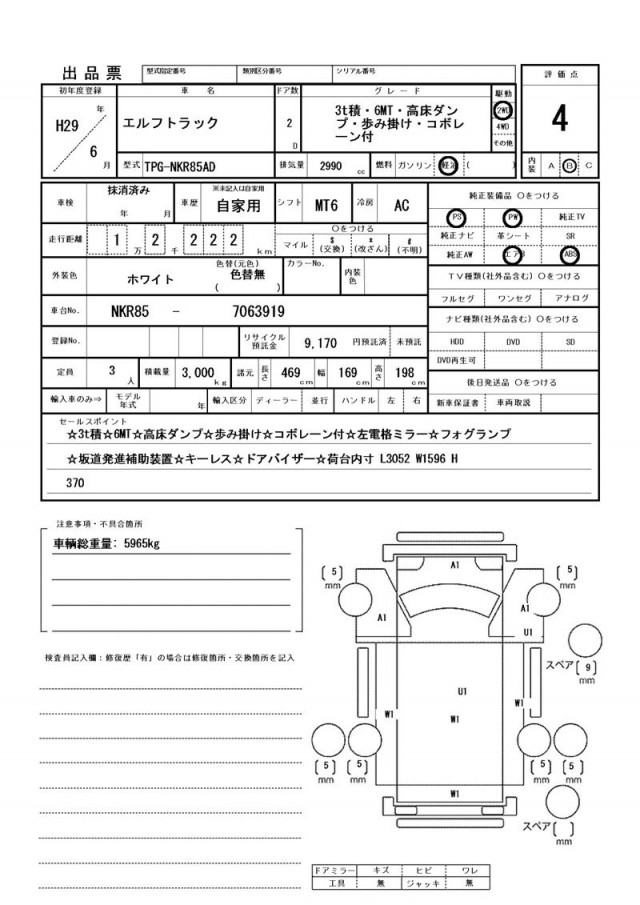 出品票 型式指定番号 類別区分番号 シリアル番号
初年度登録 車名 ドア数 グレード 駆動 評価点
H29 年 6 月 エルフトラック 2 D 3t積・6MT・高床ダンプ・歩み掛け・コボレーン付 2WD 4WD その他 4
型式 TPG-NKR85AD 排気量 2990 cc 燃料 ガソリン 軽油 ( ) 内装 A B C
車検 抹消済み 年 月 車歴 ※未記入は自家用 自家用 シフト MT6 冷房 AC 純正装備品 〇をつける
PS PW 純正TV
走行距離 1 万 2 千 2 2 2 km 〇をつける マイル $(交換) *(改ざん) #(不明) 純正ナビ 革シート SR
純正AW エアB ABS
外装色 ホワイト 色替(元色) 色替無 ( ) カラーNo. 内装色 TV種類(社外品含む) 〇をつける
フルセグ ワンセグ アナログ
車台No. NKR85 - 7063919 ナビ種類(社外品含む) 〇をつける
登録No. リサイクル預託金 9,170 円預託済 未預託 HDD DVD SD
DVD再生可
定員 3 人 積載量 3,000 kg 諸元 長さ 469 cm 幅 169 cm 高さ 198 cm 後日発送品 〇をつける
輸入車のみ⇒ モデル年式 年 輸入区分 ディーラー 並行 ハンドル 左 右 新車保証書 車両取説
セールスポイント
☆3t積☆6MT☆高床ダンプ☆歩み掛け☆コボレーン付☆左電格ミラー☆フォグランプ
☆坂道発進補助装置☆キーレス☆ドアバイザー☆荷台内寸 L3052 W1596 H
370
注意事項・不具合箇所
車輌総重量: 5965kg
検査員記入欄：修復歴「有」の場合は修復箇所・交換箇所を記入
A1
(5) mm (5) mm
A1 A1
U1
スペア(9) mm
U1
W1 W1 W1
(5) mm (5) mm (5) mm (5) mm
W1
スペア( ) mm
ドアミラー キズ ヒビ ワレ
工具 無 ジャッキ 無